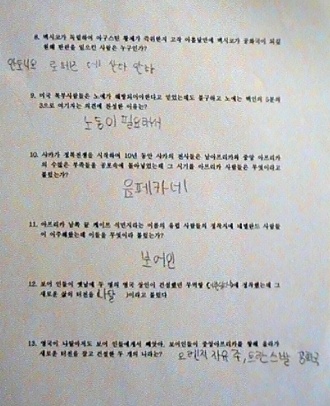 8. 멕시코가 독립하여 아구스틴 황제가 즉위한지 고작 아홉달만에 멕시코가 공화국이 되길
원해 반란을 일으킨 사람은 누구인가?
안토니오 로페즈 데 산타 안나
9. 미국 북부사람들은 노예가 해방되어야한다고 믿었는데도 불구하고 노예는 백인의 5분의
3으로 여기자는 의견에 찬성한 이유는?
노동이 필요해서
10. 샤카가 정복전쟁을 시작하여 10년 동안 샤카의 전사들은 남아프리카와 중앙 아프리카
의 수많은 부족들을 공포속에 몰아넣었는데 그 시기를 아프리카 사람들은 무엇이라고
불렀는가?
음페카네
11. 아프리카 남쪽 끝 케이프 식민지라는 이름의 유럽 사람들의 정착지에 네델란드 사람들
이 이주해왔는데 이들을 무엇이라 불렀는가?
보어인
12. 보어 인들이 옛날에 두 명의 영국 상인이 건설했던 무역항 ( )에 정착했는데 그
새로운 삶의 터전을 (나탈 )이라고 불렀다
13. 영국이 나탈마저도 보어 인들에게서 빼앗아, 보어인들이 중앙아프리카를 향해 올라가
새로운 터전을 잡고 건설한 두 개의 나라는? 오렌지 자유 주, 트란스발 공화국